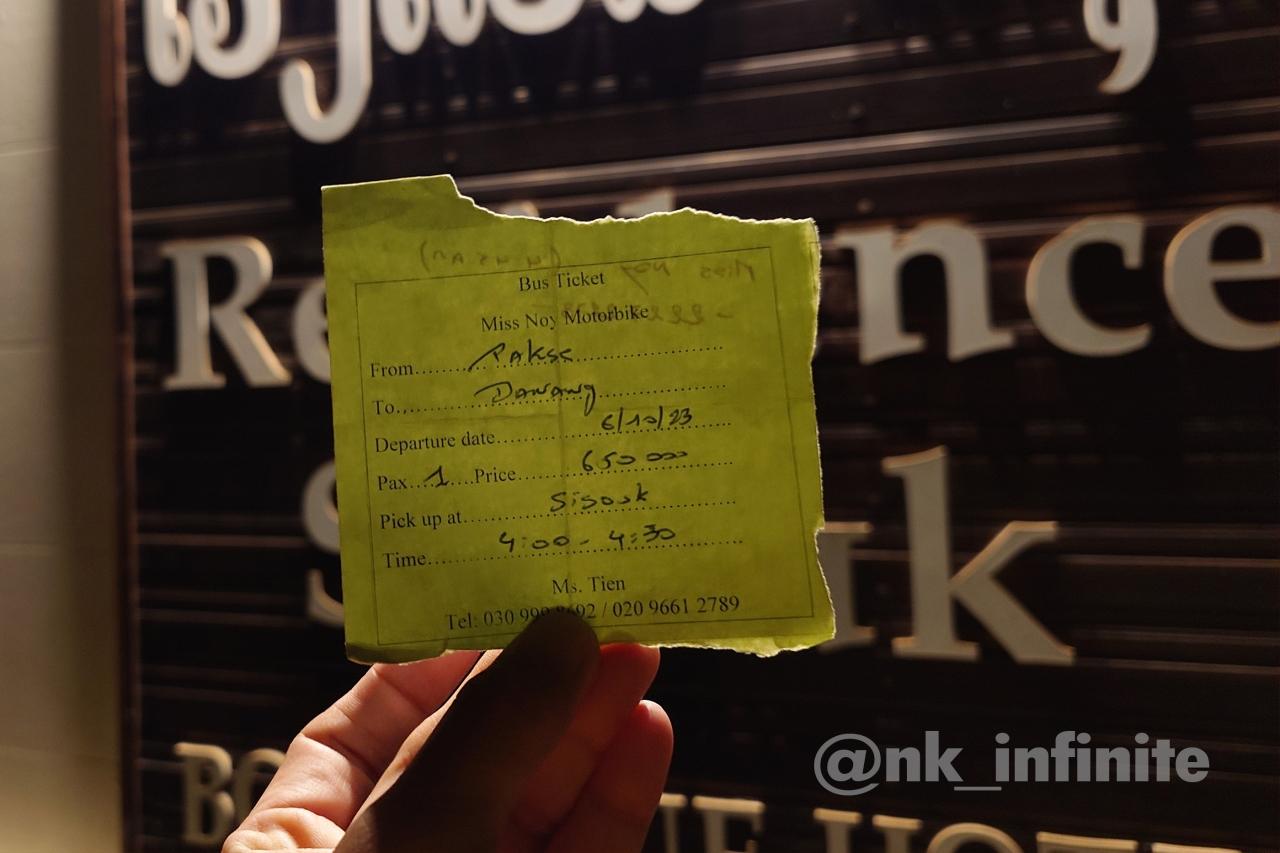 Re nce
Bus Ticket
Miss Noy Motorbike
From.......Pakse.......
To.......Danang.......
Departure date.......6/10/23.......
Pax...1....Price.......650 000.......
Pick up at.......Sisouk.......
Time.......4:00 - 4:30.......
Ms. Tien
Tel: 030 99 92 / 020 9661 2789
S uk
@nk_infinite